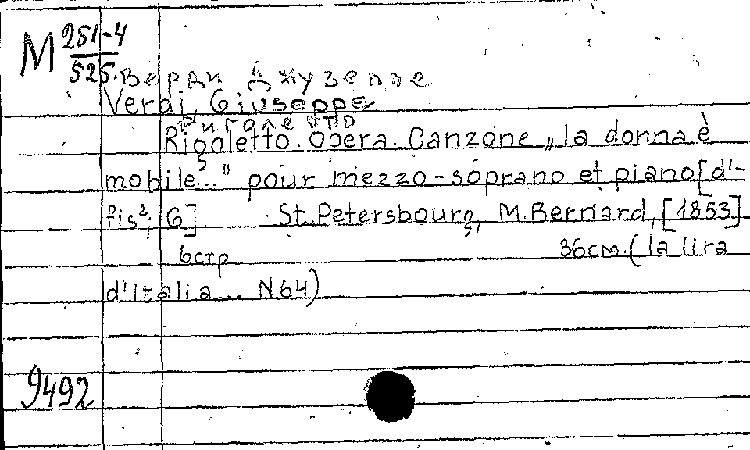 M 251-4
525.
Верди Джузеппе
Verdi, Giuseppe
Риголетто
Rigoletto. Opera. Canzone „la donna è
mobile..." pour mezzo-soprano et piano [d'-
fis²; G] St. Petersbourg, M. Bernard, [1853]
6стр 36см. (la lira
d'Italia... N64)
9492